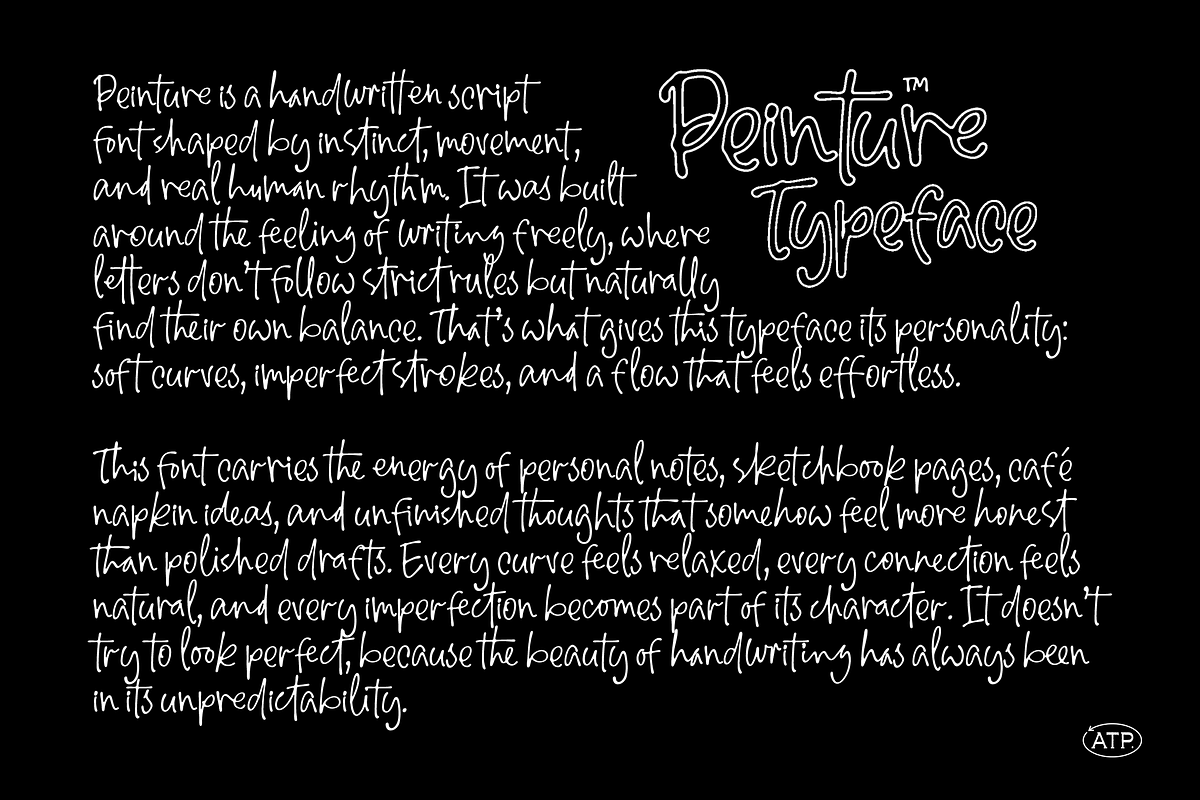 Peinture is a handwritten script
font shaped by instinct, movement,
and real human rhythm. It was built
around the feeling of writing freely, where
letters don't follow strict rules but naturally
find their own balance. That's what gives this typeface its personality:
soft curves, imperfect strokes, and a flow that feels effortless.
Peinture™
Typeface
This font carries the energy of personal notes, sketchbook pages, café
napkin ideas, and unfinished thoughts that somehow feel more honest
than polished drafts. Every curve feels relaxed, every connection feels
natural, and every imperfection becomes part of its character. It doesn't
try to look perfect, because the beauty of handwriting has always been
in its unpredictability.
ATP.